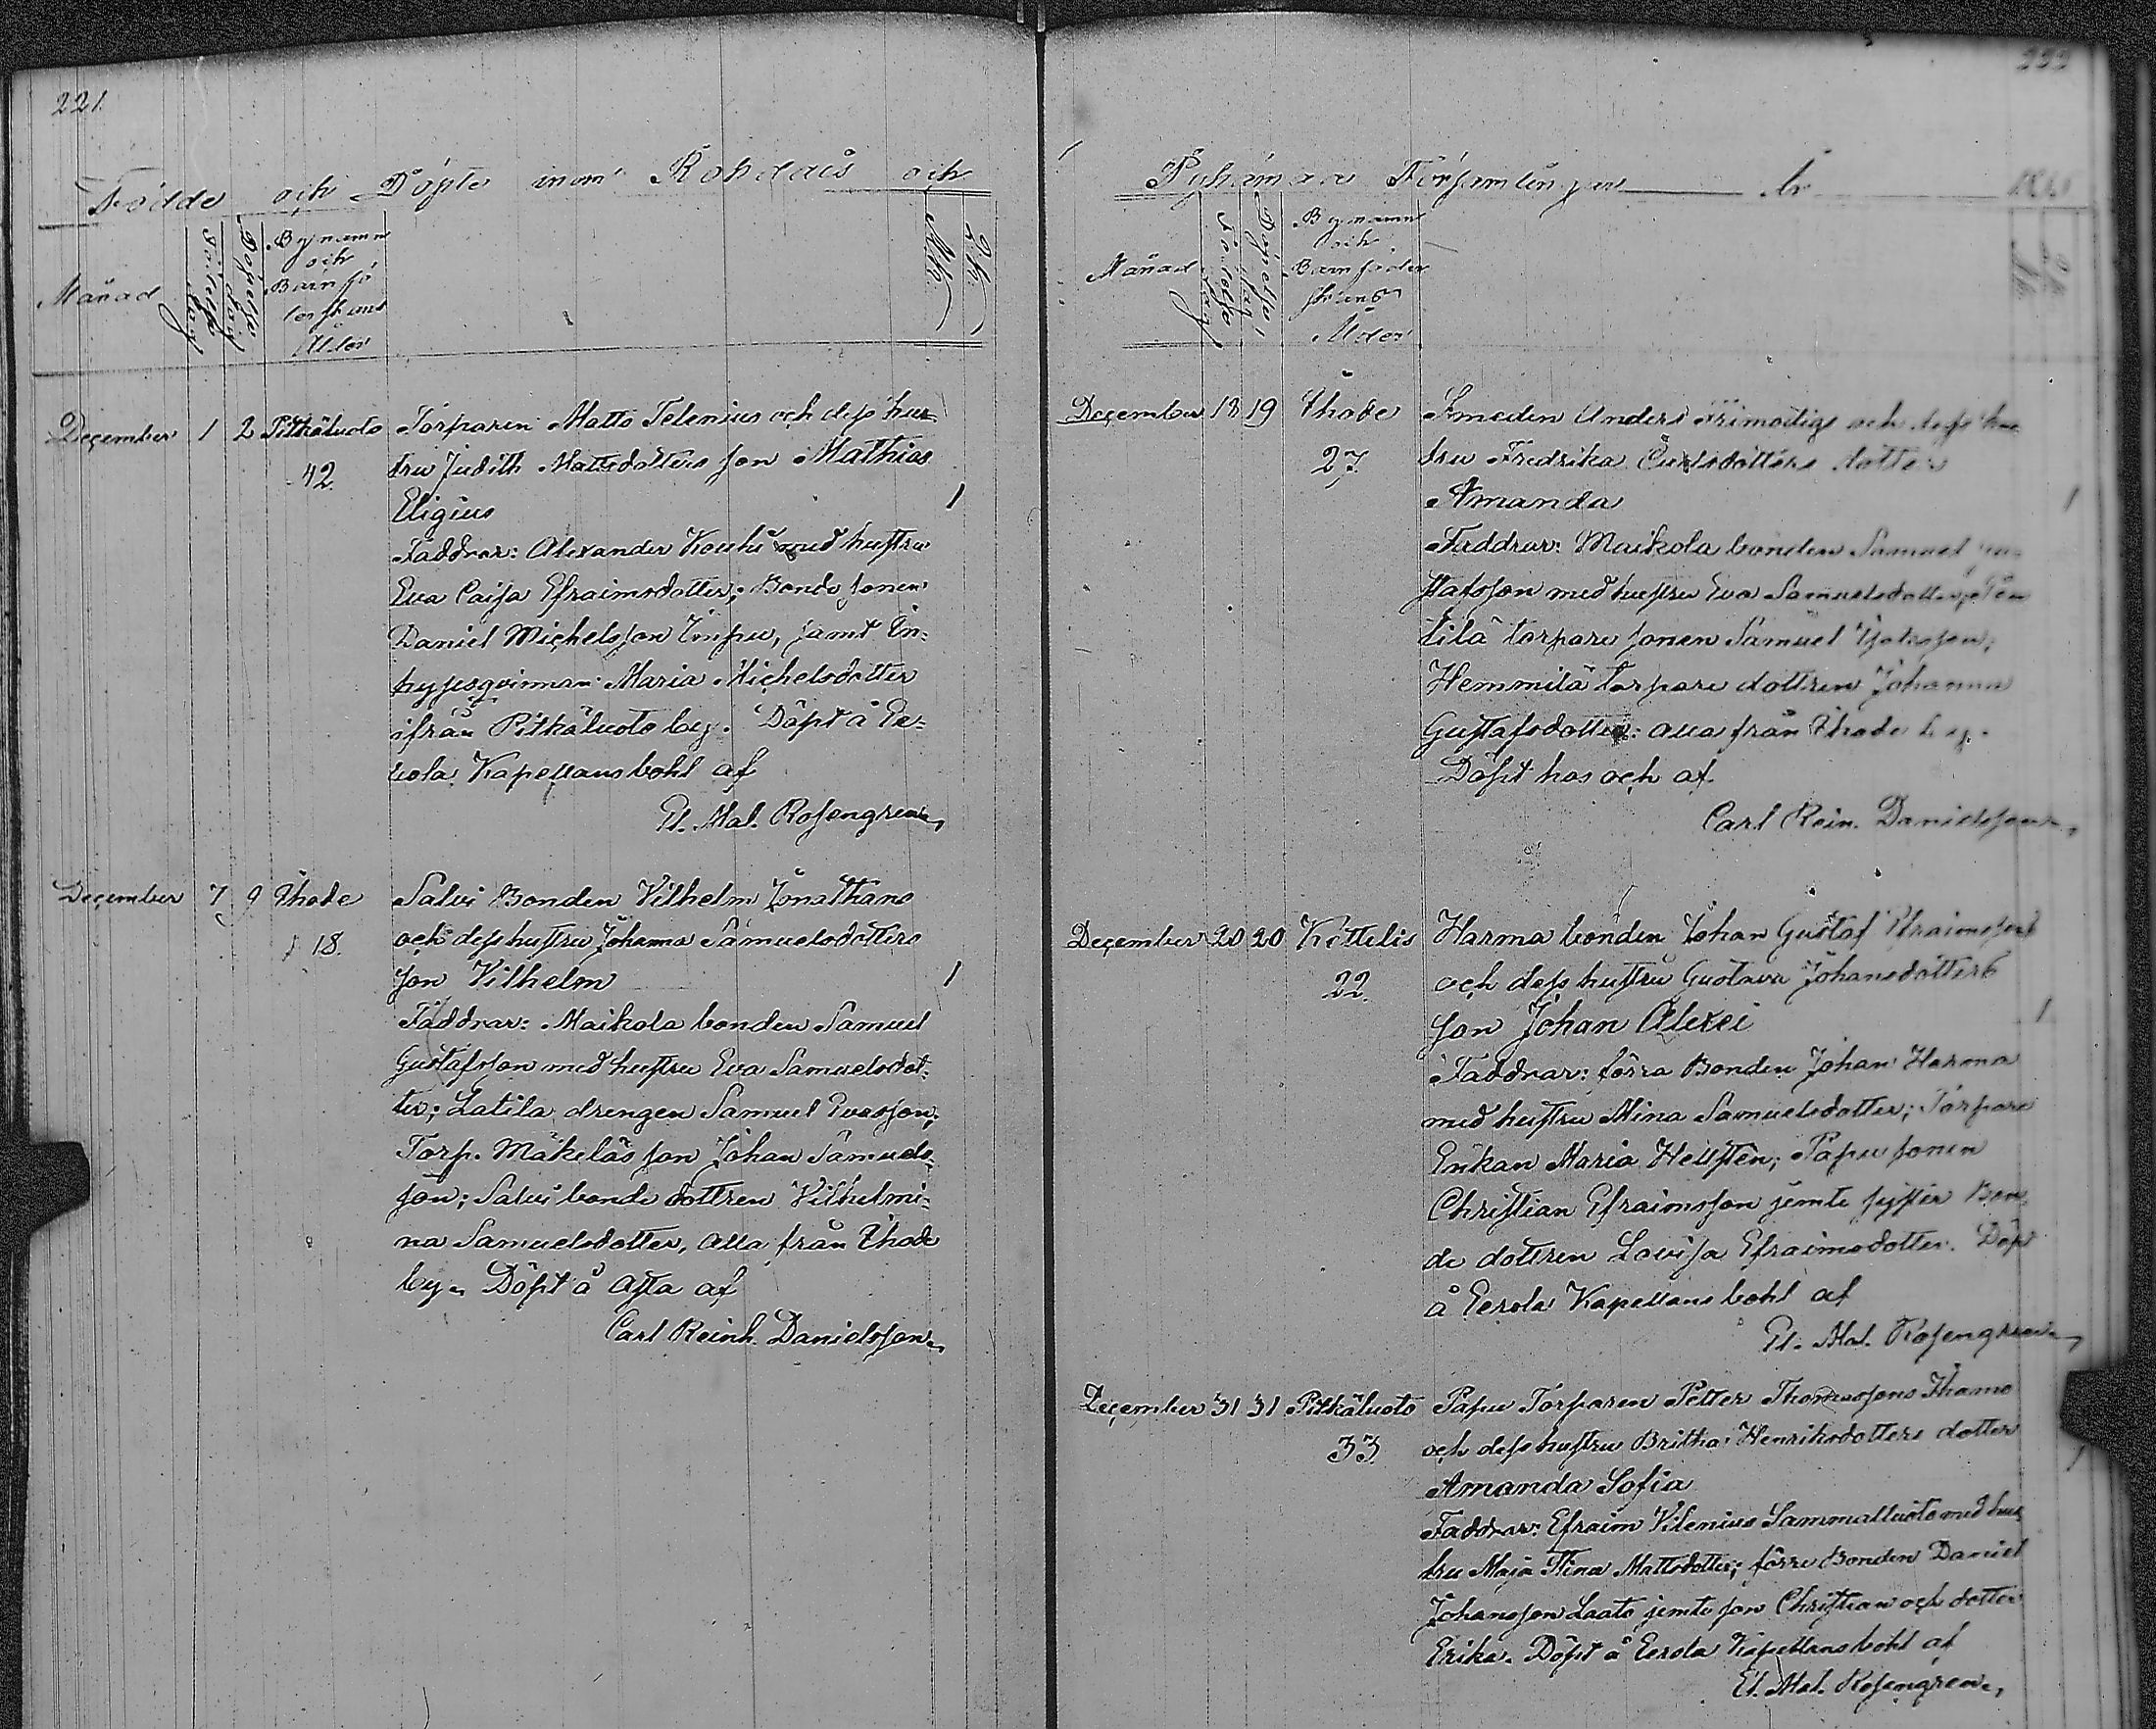 221.
Födde och Döpte inom Rohdais och
Månad
Födelse dag
Döpelse dag
Bynamn
och
Barnfö
lerskans
Ålder
Mk.
Qk.
December 1 2 Pitkäluoto Torparen Matts Telenius och dess hus-
42. tru Judith Mattsdotters son Mathias
Eligius 1
Faddrar: Alexander Kouhi med hustru
Eva Caisa Efraimsdotter; Bonde sonen
Daniel Michelsson Impu, samt In-
hysesqvinnan Maria Michelsdotter
ifrån Pitkäluoto by. Döpt å Ee-
rola Kapellansbohl af
El. Mal. Rosengren
December 7 9 Ihode Salvi Bonden Vilhelm Jonathans
18. och dess hustru Johanna Samuelsdotters
son Vilhelm 1
Faddrar: Maikola bonden Samuel
Gustafsson med hustru Eva Samuelsdot-
ter; Latila drengen Samuel Evasson;
Torp. Mäkeläs son Johan Samuels-
son; Salvi bonde dottren Vilhelmi-
na Samuelsdotter, alla från Ihode
by. Döpt å Asta af
Carl Reinh. Danielsson
222
Pyhämaa Församlingar År
Månad
Födelse dag
Döpelse dag
Bynamn
och
Barnföder
skans
Ålder
December 18 19 Ihode Smeden Anders Frimodigs och dess hus
27. tru Fredrika Carlsdotters dotter
Amanda 1
Faddrar: Maikola bonden Samuel Gu-
stafsson med hustru Eva Samuelsdotter;
tilä torpare sonen Samuel
Hemmilä torpare dottren Johanna
Gustafsdotter: alla från Ihode by.
Döpt hos och af
Carl Rein. Danielsson
December 20 20 Kittelis Harma bonden Johan Gustaf Efraimssons
22. och dess hustru Gustava Johansdotters
son Johan Alexei 1
Faddrar: förra Bonden Johan Harma
med hustru Mina Samuelsdotter; Torpare
Enkan Maria Hellsten; Papu sonen
Christian Efraimsson jemte syster Bon-
de dottren Lovisa Efraimsdotter. Döpt
å Eerola Kapellans bohl af
El. Mal. Rosengren
December 31 31 Pitkäluoto Papu Torparen Petter Thomassons Ihamo
33 och dess hustru Britha Henriksdotters dotter
Amanda Sofia 1
Faddrar: Efraim Vilenius Sammalluoto med hus
tru Maja Stina Mattsdotter; förre Bonden Daniel
Johansson Laato jemte son Christian och dotter
Erika. Döpt å Eerola Kapellansbohl af
El. Mal. Rosengren